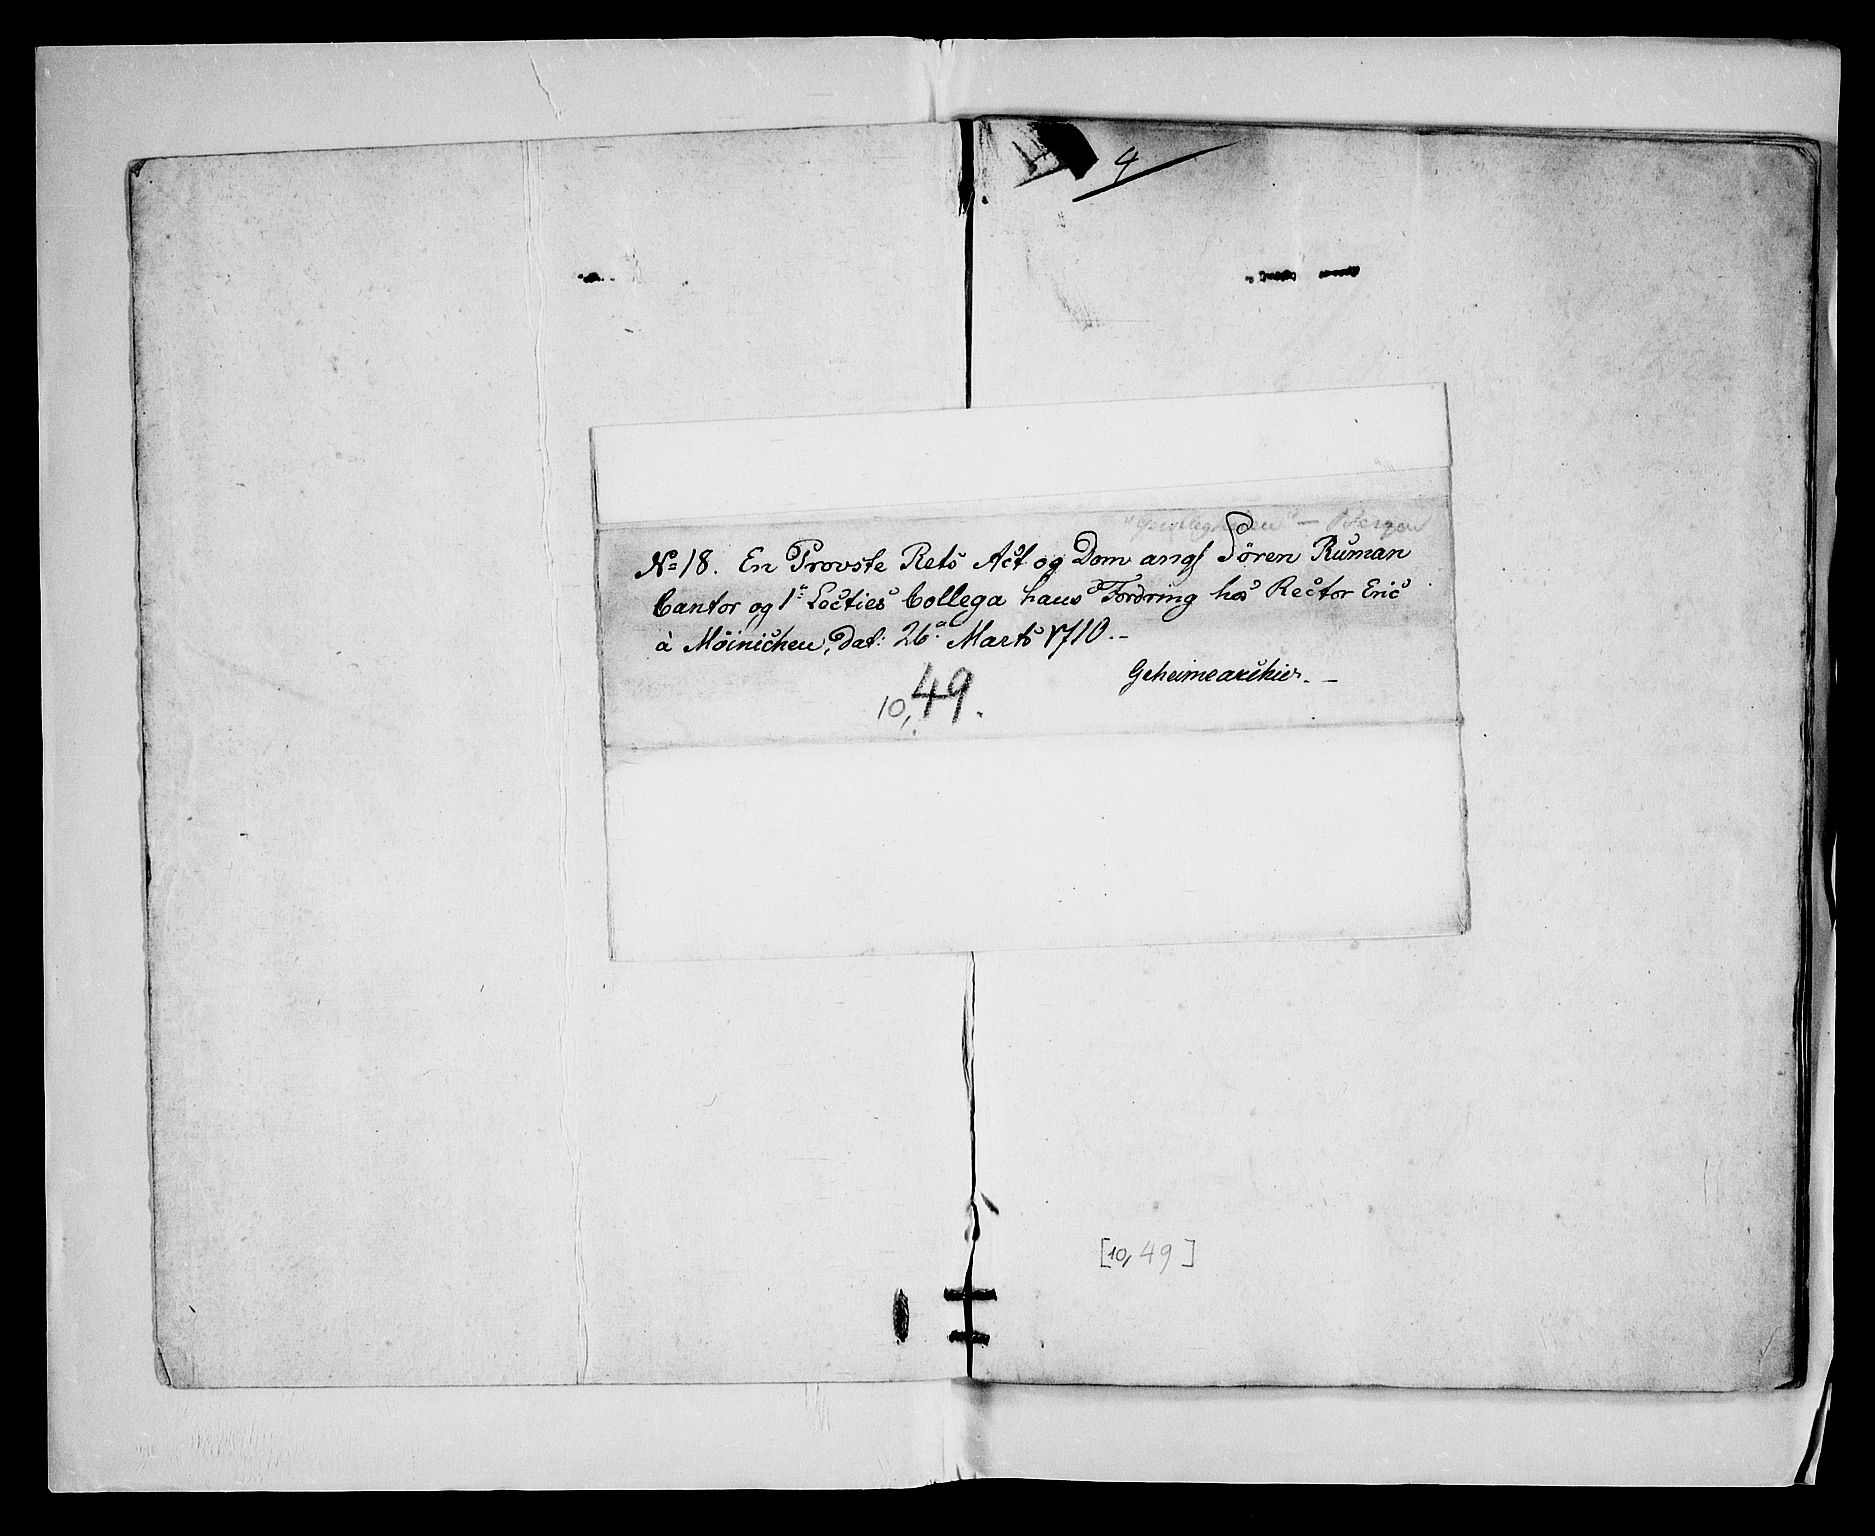 4
Bergen
No 18. En Provste Rets Act og Dom angl Sören Ruman
Cantor og 1ae Lecties Collega hans Fordring hos Rector Eric
à Möinichen, dat: 26a Marts 1710.-
Geheimearchiv. -
10, 49.
[10, 49]